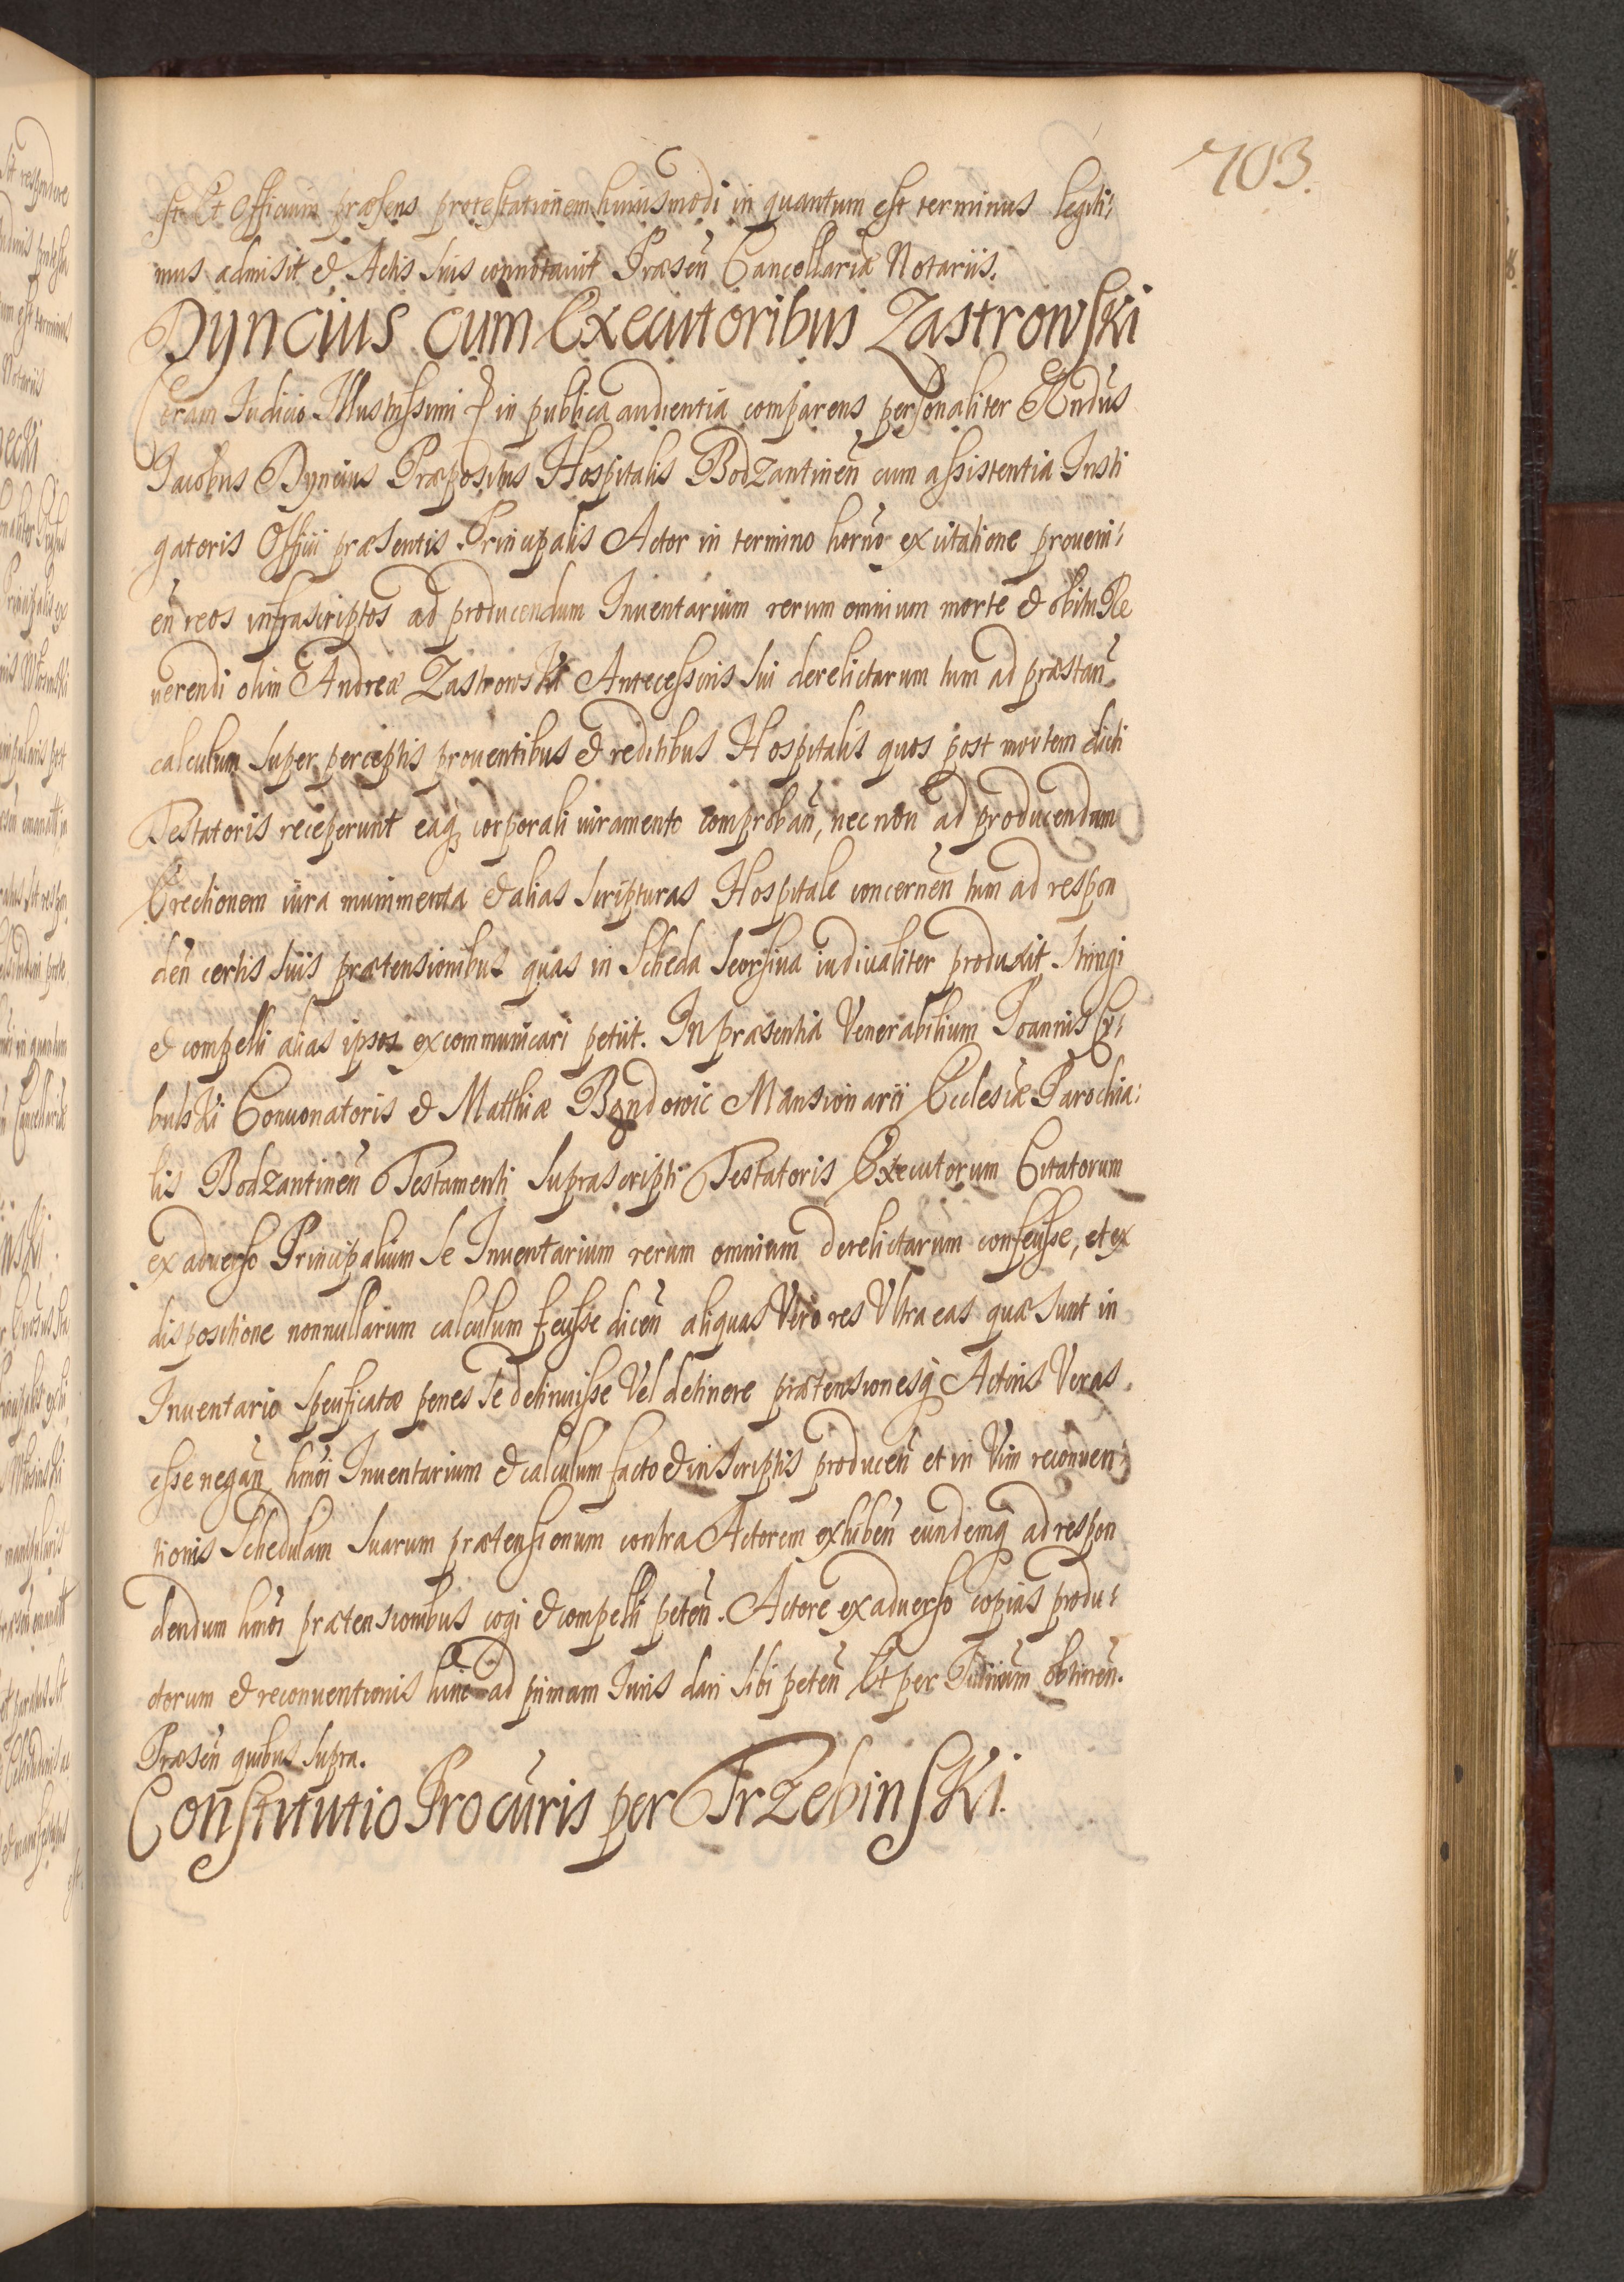 703.
est Et Officium præsens protestationem huiusmodi in quantum est terminus legiti:
mus admisit & Actis suis connotauit Præsen̄ Cancellariæ Notariis.
Dyncius cum Executoribus Zastrowski
Coram Iudicio Illustrissimi in publica audientia comparens personaliter Rndūs
Iacobus Dyncius Præpositus Hospitalis Bodzantinen̄ cum assistentia Insti
gatoris Officii præsentis Principalis Actor in termino horno ex citatione proueni:
en̄ reos infrascriptos ad producendum Inuentarium rerum omnium morte & obitu Re
uerendi olim Andreæ Zastrowski Antecessoris sui derelictarum tum ad præstan̄
calculum super perceptis prouentibus & reditibus Hospitalis quos post mortem dicti
Testatoris receperunt eaq; corporali iuramento comproban̄, nec non ad producendam
Erectionem iura munimenta & alias scripturas Hospitale concernen̄ tum ad respon
den̄ certis suis prætensionibus quas in scheda seorsiua iudicialiter produxit stringi
& compelli alias ipsos excommunicari petiit. In præsentia Venerabilium Ioannis Cy:
bulski Concionatoris & Matthiæ Bandowic Mansionarii Ecclesiæ Parochia:
lis Bodzantinen̄ Testamenti suprascripti Testatoris Executorum Citatorum
ex aduerso Principalium se Inuentarium rerum omnium derelictarum confecisse, et ex
dispositione nonnullarum calculum fecisse dicen̄ aliquas Vero res Vltra eas quæ sunt in
Inuentario specificatæ penes se detinuisse Vel detinere prætensionesq̃ Actoris Veras
esse negan̄, hmōi Inuentarium & calculum facto & in scriptis producen̄ et in Vim reconuen:
tionis Schedulam suarum prætensionum contra Actorem exhiben̄ eundemq̃ ad respon
dendum hmōi prætensionibus cogi & compelli peten̄. Actore ex aduerso copias produ:
ctorum & reconuentionis hinc ad primam Iuris dari sibi peten̄ Et per Iudicium obtinen̄.
Præsen̄ quibus supra.
Constitutio Procūris per Trzebinski.